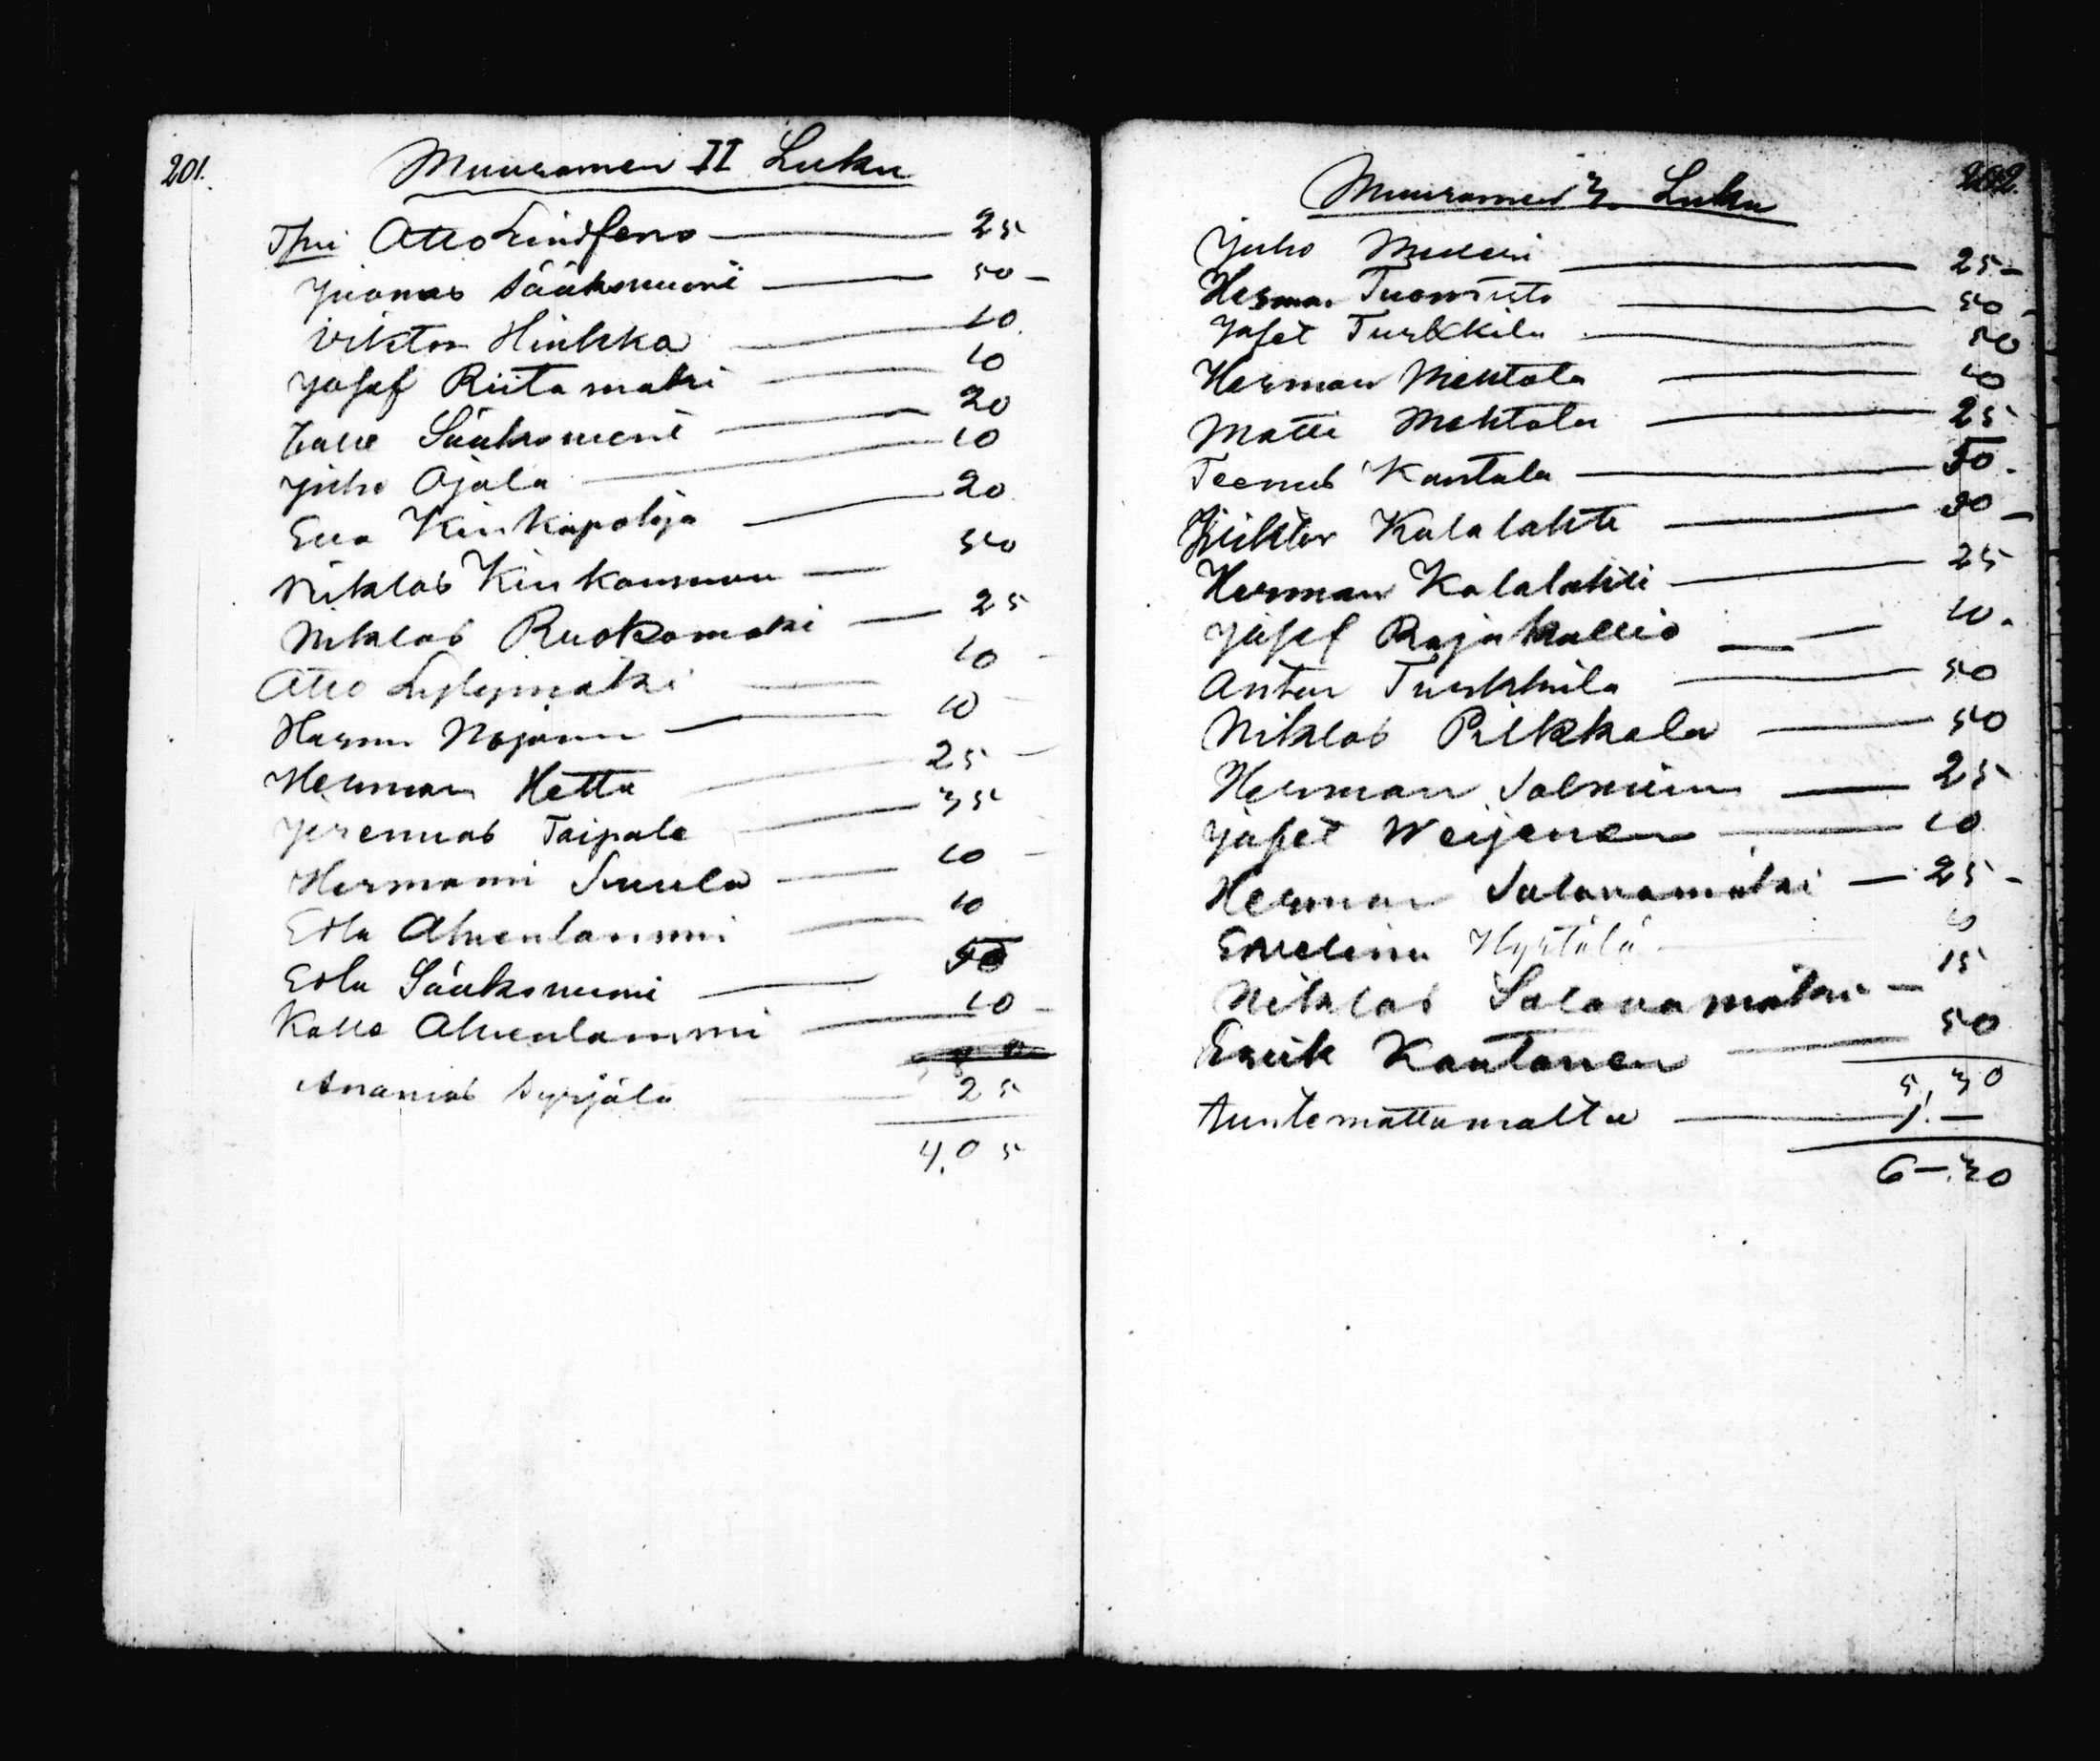 201.
Muuramen II Luku
Otto Lindfors 25
Juonas Sääksniemi 50 –
Viktor Hinkka 10.
Josef Riitamäki 10
Kalle Sääksniemi 20
Juho Ojala 10
Eva Kinkapohja 20
Niklas Kinkomaa 50
Niklas Ruokomäki 25
Otto Lylymäki 10 –
Herman Nojonen 10 –
Herman Hetta 25 –
Jeremias Taipale 35
Hermanni Suula 10 –
Edla Ahvenlammi 10
Edla Sääksniemi 50
Kalle Ahvenlammi 10 –
Ananias Syrjälä 25
4,05
202.
Muuramen 3 Luku
Juho 25 –
Herman Tuomisto 50 –
Jafet Turkkila 50
Herman Mehtola 40
Matti Mehtola 25
Teemus Kantola 50.
Viktor Kalalahti 30 –
Herman Kalalahti 25
Josef Rajakallio 10.
Anton Turkkila 50
Niklas Pilkkala 50
Herman Salminen 25
Jafet Weijenen 10
Herman Salavamäki 25 –
Eveliina Hyrtälä
Niklas Salavamäki 15
Eerik Kantonen 50
5,30
Tuntemattomalta 1.–
6–.30